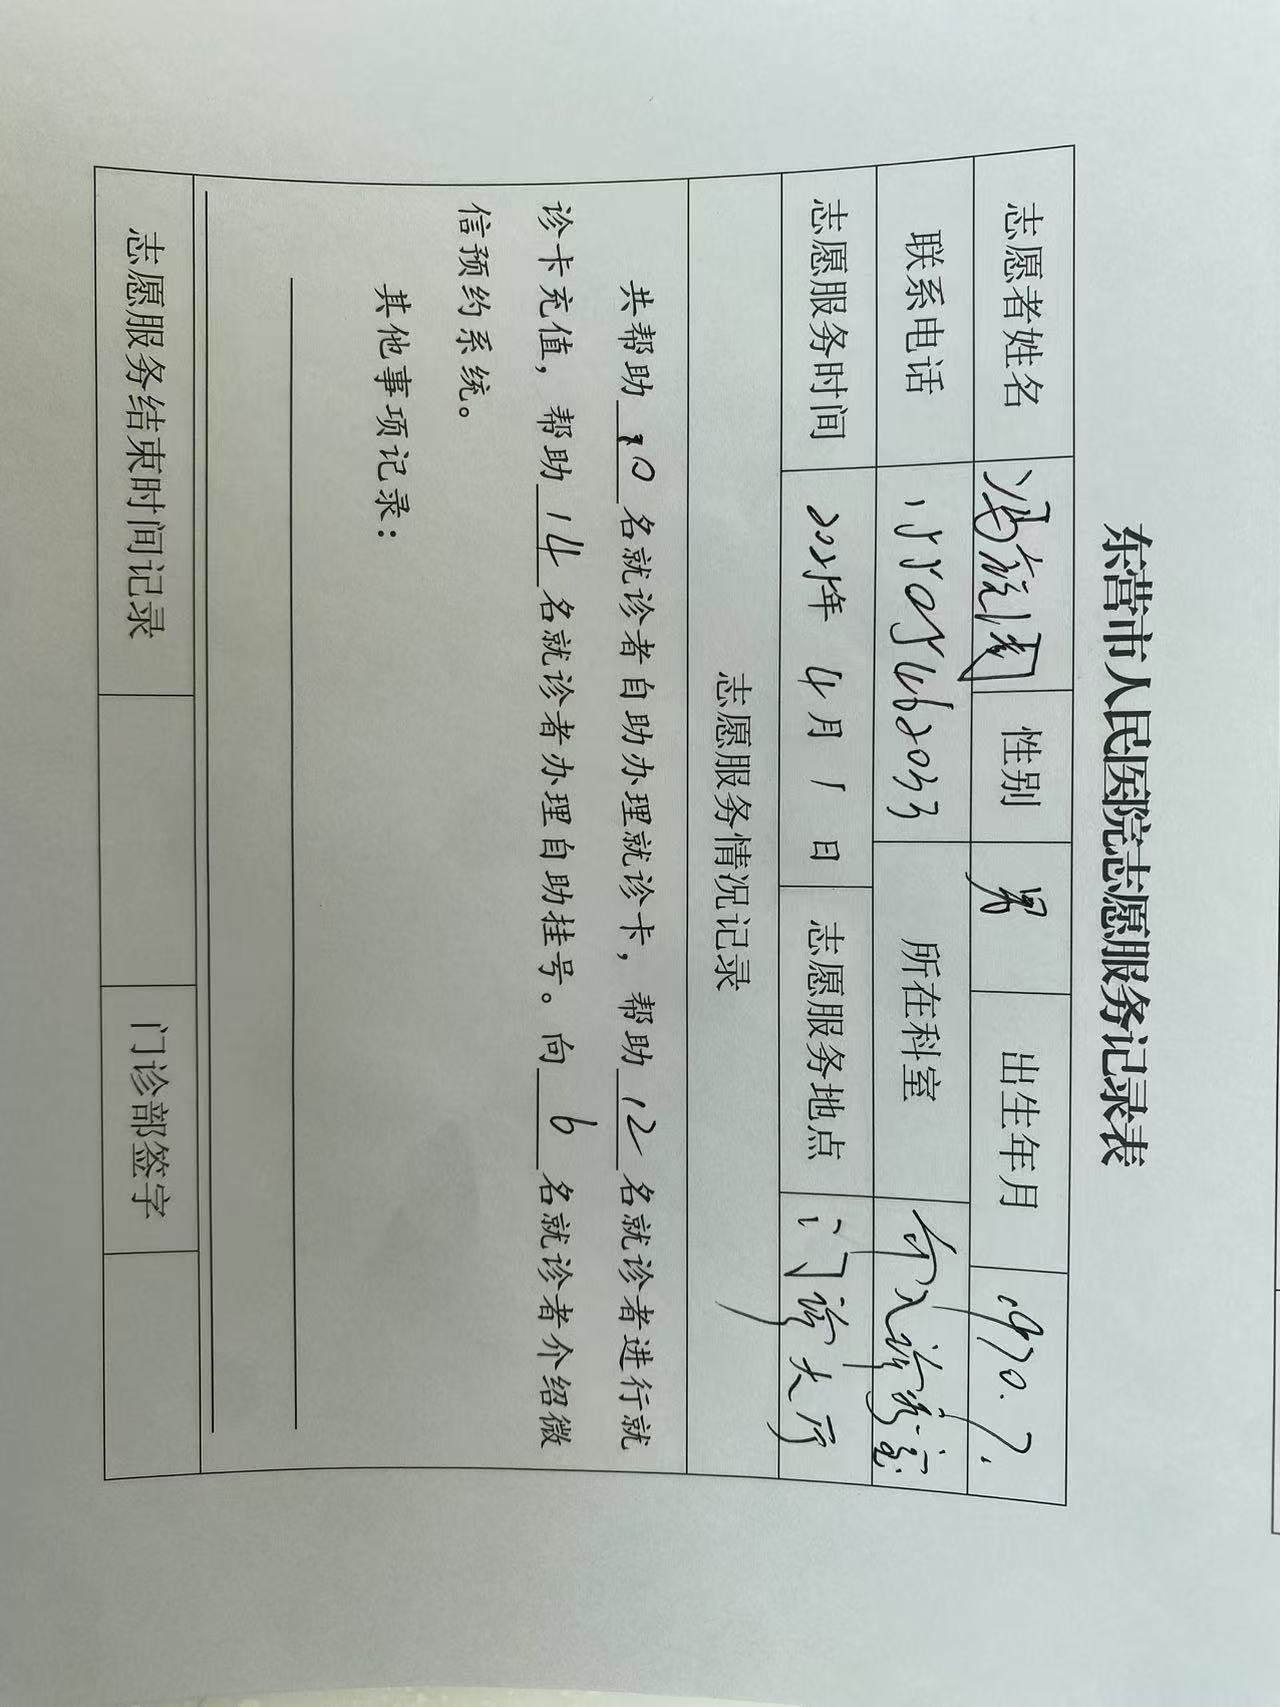 东营市人民医院志愿服务记录表
志愿者姓名 冯 性别 男 出生年月 1970.7.
联系电话 15505462033 所在科室 介入诊疗室
志愿服务时间 2025年 4月 1日 志愿服务地点 门诊大厅
志愿服务情况记录
共帮助 10 名就诊者自助办理就诊卡，帮助 12 名就诊者进行就
诊卡充值，帮助 14 名就诊者办理自助挂号。向 6 名就诊者介绍微
信预约系统。
其他事项记录：
志愿服务结束时间记录 门诊部签字